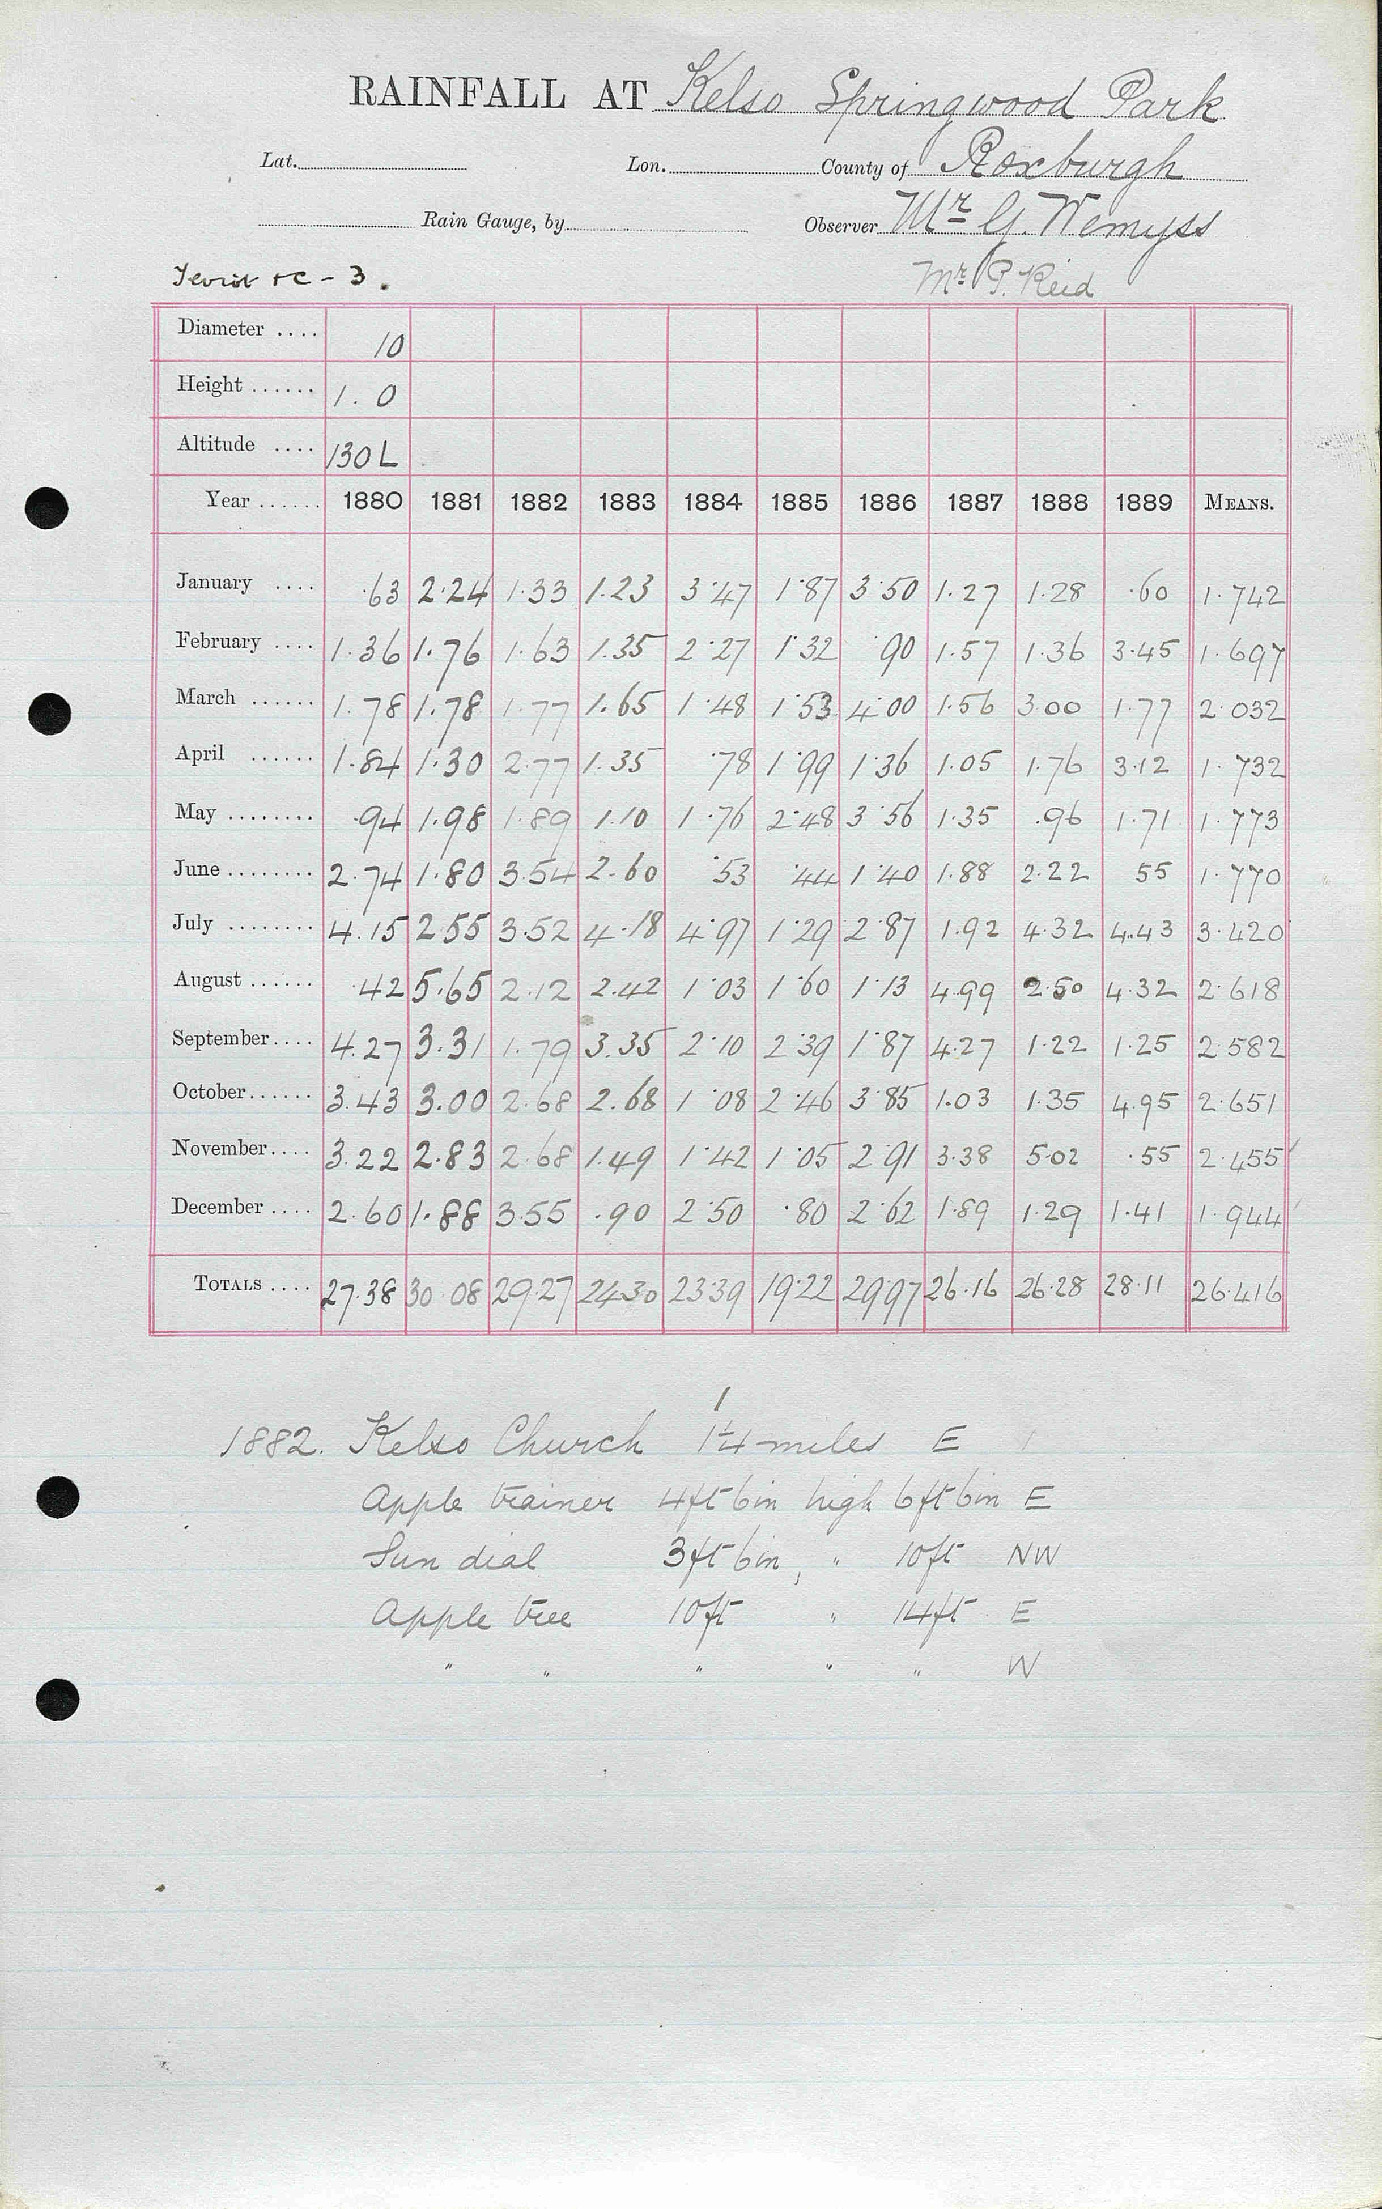 RAINFALL AT Kelso Springwood Park
Lat. Lon. County of Roxburgh
Rain Gauge, by Observer Mr G. Wemyss
Teviot &c - 3. Mr P. Reid
Diameter .... 10
Height ...... 1. 0
Altitude .... 130 L
Year ...... 1880 1881 1882 1883 1884 1885 1886 1887 1888 1889 MEANS.
January .... .63 2.24 1.33 1.23 3.47 1.87 3.50 1.27 1.28 .60 1.742
February .... 1.36 1.76 1.63 1.35 2.27 1.32 .90 1.57 1.36 3.45 1.697
March ...... 1.78 1.78 1.77 1.65 1.48 1.53 4.00 1.56 3.00 1.77 2.032
April ...... 1.84 1.30 2.77 1.35 .78 1.99 1.36 1.05 1.76 3.12 1.732
May ........ .94 1.98 1.89 1.10 1.76 2.48 3.56 1.35 .96 1.71 1.773
June ........ 2.74 1.80 3.54 2.60 .53 .44 1.40 1.88 2.22 55 1.770
July ........ 4.15 2.55 3.52 4.18 4.97 1.29 2.87 1.92 4.32 4.43 3.420
August ...... .42 5.65 2.12 2.42 1.03 1.60 1.13 4.99 2.50 4.32 2.618
September.... 4.27 3.31 1.79 3.35 2.10 2.39 1.87 4.27 1.22 1.25 2.582
October...... 3.43 3.00 2.68 2.68 1.08 2.46 3.85 1.03 1.35 4.95 2.651
November.... 3.22 2.83 2.68 1.49 1.42 1.05 2.91 3.38 5.02 .55 2.455
December .... 2.60 1.88 3.55 .90 2.50 .80 2.62 1.89 1.29 1.41 1.944
TOTALS .... 27.38 30.08 29.27 24.30 23.39 19.22 29.97 26.16 26.28 28.11 26.416
1882. Kelso Church 1¼ miles E
Apple trainer 4ft 6in high 6ft 6in E
Sun dial 3ft 6in, " 10ft NW
Apple tree 10ft " 14ft E
" " " " " W